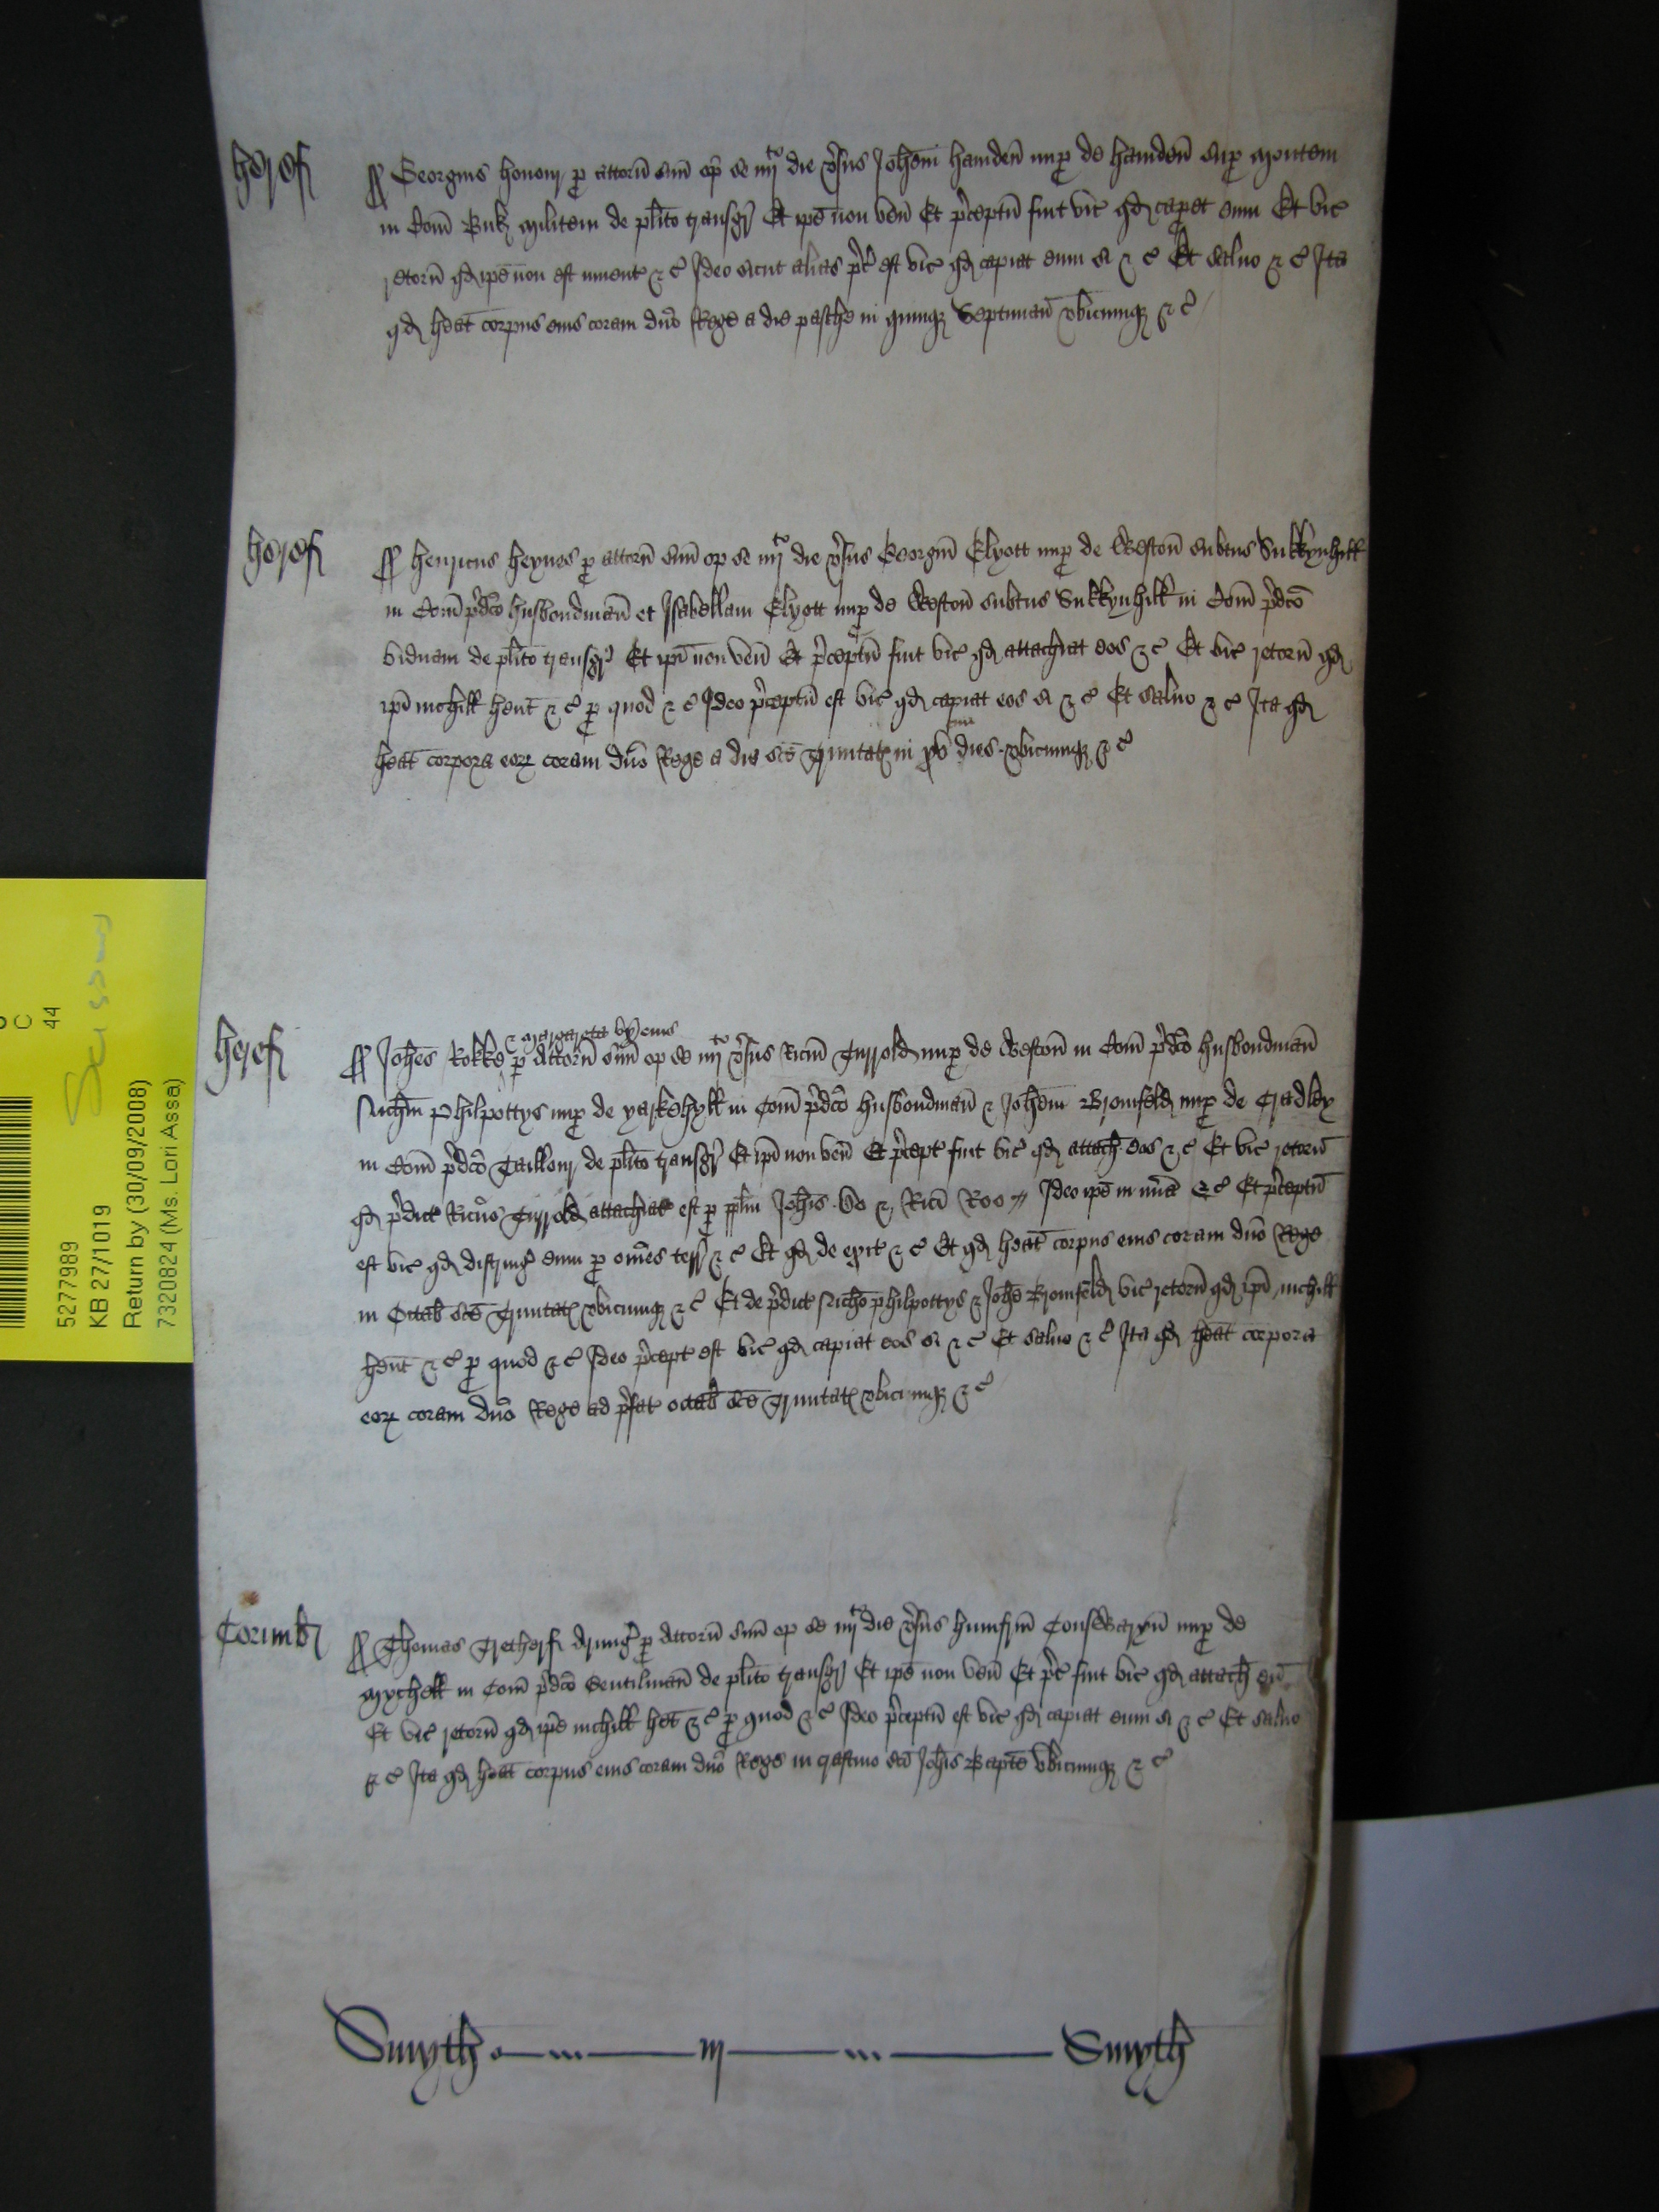 Heref
Georgius Honour p attorn suu op se iiijto die vsus Johem Hamden nup de Hamden sup montem
in Com Buk militem de plito transgr Et ipe non ven Et pceptu fuit vic qd caperet eum Et vic
retorn qd ipe non est invent &c Ideo sicut alias pc est vic qd capiat eum si &c Et salvo &c Ita
qd heat corpus eius coram dno Rege a die pasche in quinq septiman vbicumq &c
Heref
Henricus Heynes p attorn suu op se iiijto die vsus Georgiu Elyott nup de Weston subtus
in Com pdco husbondman et Isabellam Elyott nup de Weston subtus in Com pdco
viduam de plito transgr Et ipi non ven Et pceptu fuit vic qd attachiat eos &c Et vic retorn qd
ipi nichill hent &c p quod &c Ideo pceptu est vic qd capiat eos si &c Et salvo &c Ita qd
heat corpora eor coram dno Rege a die sce Trinitat in xv dies vbicumq &c
Heref
& Margareta vx eius
Johes Kokke p attorn suu op se iiijto vsus Ricm Turrold nup de Weston in Com pdco husbondman
Nichm Philpottys nup de Yarkehyll in Com pdco husbondman & Johem Bromfeld nup de Cradley
in Com pdco Taillour de plito transgr Et ipi non ven Et pcept fuit vic qd attach eos &c Et vic retorn
qd pdict Ricus Turrold attachiat est p pplm Johis Do & Rici Roo Ideo ipe in mia &c Et pceptu
est vic qd distring eum p omes terr &c Et qd de exit &c Et qd heat corpus eius coram dno Rege
in Octab sce Trinitat vbicumq &c Et de pdict Nicho Philpottys & Johe Bromfeld vic retorn qd ipi nichill
hent &c p quod &c Ideo pcept est vic qd capiat eos si &c Et salvo &c Ita qd heat corpora
eor coram dno Rege ad pfat octab sce Trinitat vbicumq &c
Cornub
Thomas Tretherf Armig p attorn suu op se iiijto die vsus Humfrm nup de
Mychell in Com pdco Gentilman de plito transgr Et ipe non ven Et pc fuit vic qd attach eu
Et vic retorn qd ipe nichill het &c p quod &c Ideo pceptu est vic qd capiat eum si &c Et salvo
&c Ita qd heat corpus eius coram dno Rege in crastino sci Johis Bapte vbicumq &c
Smyth m Smyth
C
44
5277989
KB 27/1019
Return by (30/09/2008)
7320824 (Ms. Lori Assa)